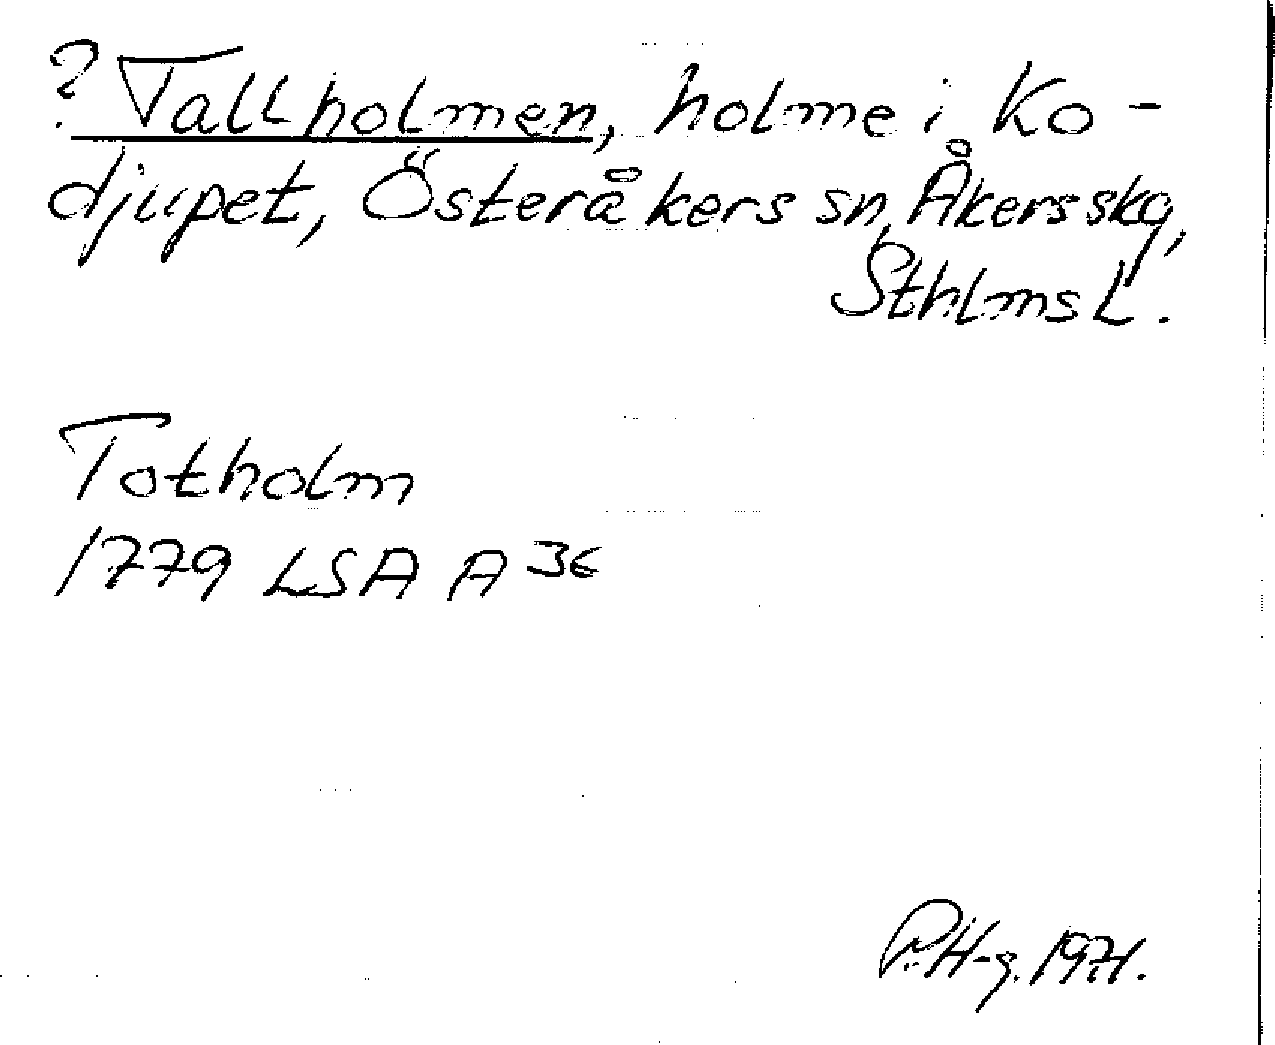 ? Tallholmen, holme i Ko-
djupet, Österåkers sn, Åkers skg,
Sthlms L.
Totholm
1779 LSA A 36
P.H-g. 1971.